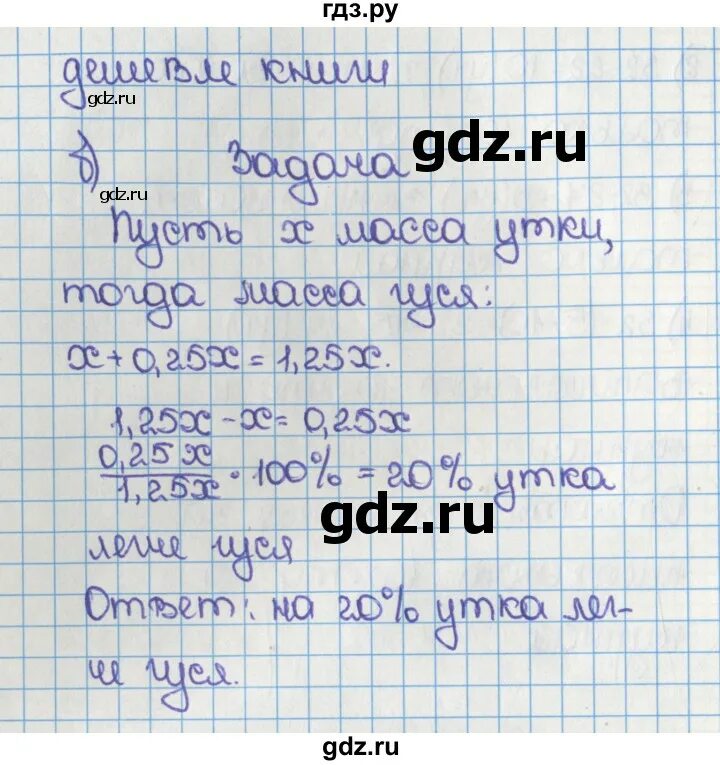 гдз.ру
дешевле книги
gdz.ru
б) Задача
gdz.ru
gdz.ru
Пусть x масса утки,
тогда масса гуся:
x + 0,25x = 1,25x.
1,25x - x = 0,25x
0,25x / 1,25x · 100% = 20% утка
gdz.ru
легче гуся
Ответ: на 20% утка лег-
че гуся.
gdz.ru